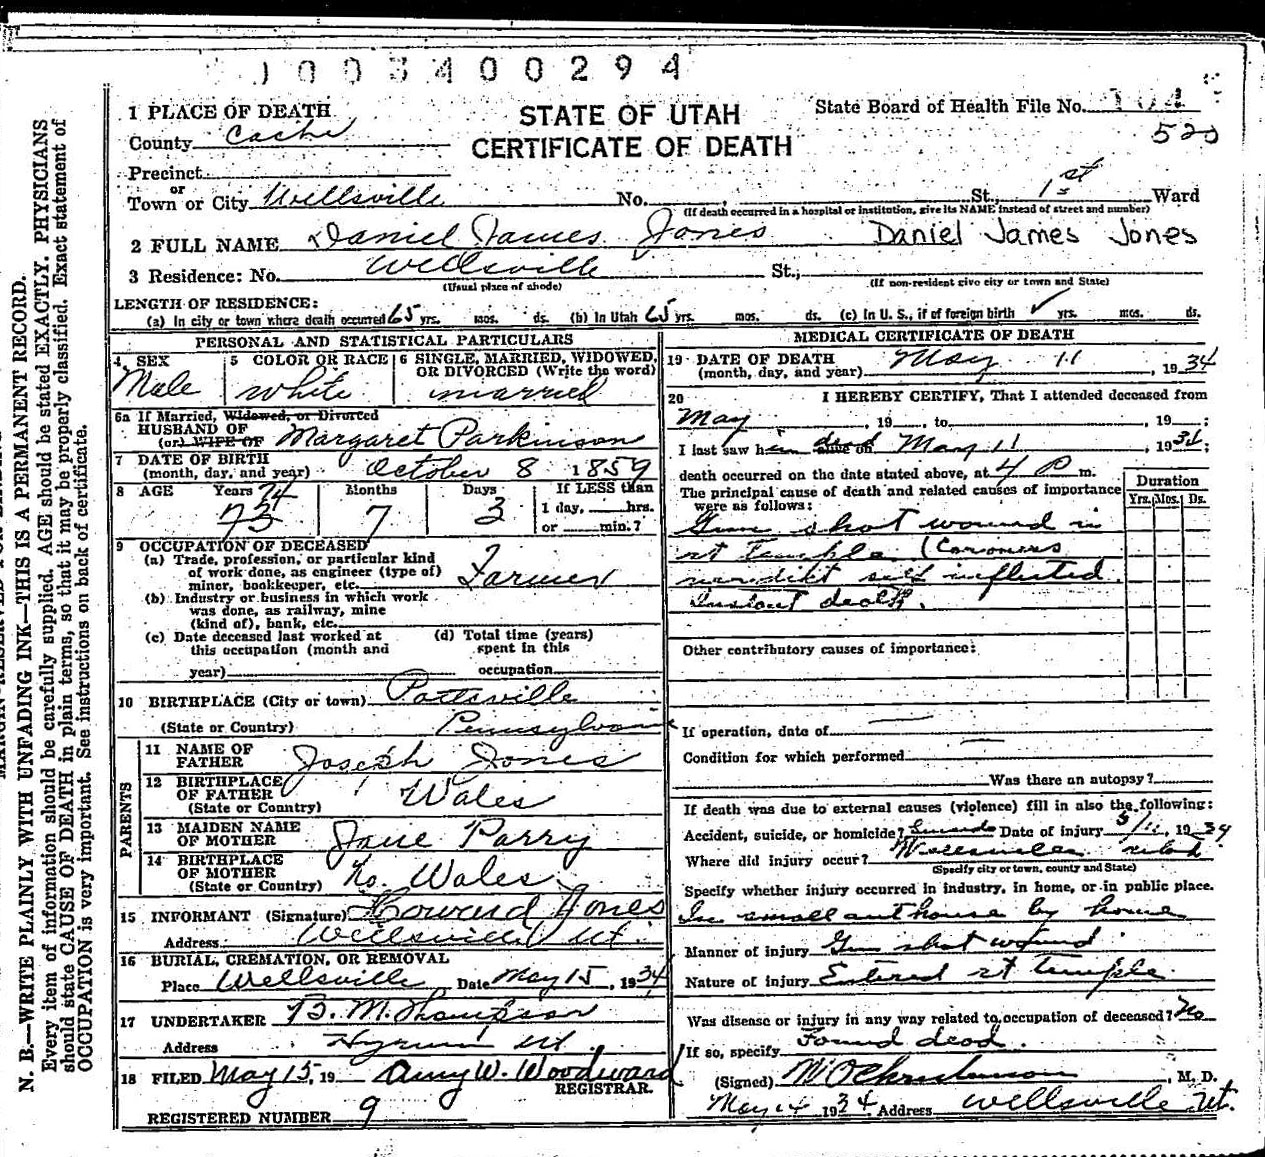 0 0 3 4 0 0 2 9 4
1 PLACE OF DEATH
STATE OF UTAH
CERTIFICATE OF DEATH
State Board of Health File No. 104
520
County Cache
Precinct
or
Town or City Wellsville No. St., 1st Ward
(If death occurred in a hospital or institution, give its NAME instead of street and number)
2 FULL NAME Daniel James Jones Daniel James Jones
3 Residence: No. Wellsville St.,
(Usual place of abode) (If non-resident give city or town and State)
LENGTH OF RESIDENCE:
(a) In city or town where death occurred 65 yrs. mos. ds. (b) In Utah 65 yrs. mos. ds. (c) In U. S., if of foreign birth ✓ yrs. mos. ds.
PERSONAL AND STATISTICAL PARTICULARS
4 SEX
Male
5 COLOR OR RACE
white
6 SINGLE, MARRIED, WIDOWED,
OR DIVORCED (Write the word)
married
6a If Married, Widowed, or Divorced
HUSBAND OF
(or) WIFE OF Margaret Parkinson
7 DATE OF BIRTH
(month, day, and year) October 8 1859
8 AGE Years Months Days If LESS than
74
75 7 3 1 day, hrs.
or min.?
9 OCCUPATION OF DECEASED
(a) Trade, profession, or particular kind
of work done, as engineer (type of)
miner, bookkeeper, etc. Farmer
(b) Industry or business in which work
was done, as railway, mine
(kind of), bank, etc.
(c) Date deceased last worked at
this occupation (month and
year)
(d) Total time (years)
spent in this
occupation
10 BIRTHPLACE (City or town) Pottsville
(State or Country) Pennsylvania
PARENTS
11 NAME OF
FATHER Joseph Jones
12 BIRTHPLACE
OF FATHER
(State or Country) Wales
13 MAIDEN NAME
OF MOTHER Jane Parry
14 BIRTHPLACE
OF MOTHER
(State or Country) No. Wales
15 INFORMANT (Signature) Howard Jones
Address Wellsville Ut.
16 BURIAL, CREMATION, OR REMOVAL
Place Wellsville Date May 15, 1934
17 UNDERTAKER B. M. Thompson
Address Hyrum Ut.
18 FILED May 15, 19 Amy W. Woodward
REGISTRAR.
REGISTERED NUMBER 9
MEDICAL CERTIFICATE OF DEATH
19 DATE OF DEATH
(month, day, and year) May 11, 1934
20 I HEREBY CERTIFY, That I attended deceased from
May, 19, to, 19;
I last saw him dead alive on May 11 1934;
death occurred on the date stated above, at 4 P m.
The principal cause of death and related causes of importance
were as follows:
Duration
Yrs. Mos. Ds.
Gun shot wound in
rt Temple (Coroners
verdikt self inflicted.
Instant death.
Other contributory causes of importance:
If operation, date of
Condition for which performed
Was there an autopsy?
If death was due to external causes (violence) fill in also the following:
Accident, suicide, or homicide? Suicide Date of injury 5/11, 1934
Where did injury occur? Wellsville Utah
(Specify city or town, county and State)
Specify whether injury occurred in industry, in home, or in public place.
In small outhouse by home
Manner of injury Gun shot wound.
Nature of injury Entered rt temple
Was disease or injury in any way related to occupation of deceased? No
If so, specify Found dead.
(Signed), M. D.
May 14 1934 Address Wellsville Ut.
N. B.—WRITE PLAINLY WITH UNFADING INK—THIS IS A PERMANENT RECORD.
Every item of information should be carefully supplied. AGE should be stated EXACTLY. PHYSICIANS
should state CAUSE OF DEATH in plain terms, so that it may be properly classified. Exact statement of
OCCUPATION is very important. See instructions on back of certificate.